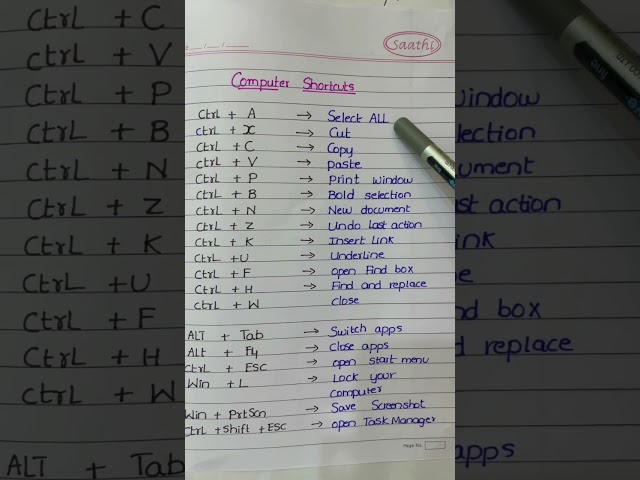 Saathi
Computer Shortcuts
Ctrl + A → Select ALL
Ctrl + X → Cut
Ctrl + C → Copy
Ctrl + V → Paste
Ctrl + P → Print window
Ctrl + B → Bold selection
Ctrl + N → New document
Ctrl + Z → Undo last action
Ctrl + K → Insert link
Ctrl +U → Underline
Ctrl + F → open Find box
Ctrl + H → Find and replace
Ctrl + W close
ALT + Tab → Switch apps
Alt + F4 → Close apps
Ctrl + ESC → open start menu
Win + L → Lock your
computer
Win + PrtScn → Save Screenshot
Ctrl +Shift +ESC → open Task Manager
Page No.
Ctrl + C
Ctrl + V
Ctrl + P
Ctrl + B
Ctrl + N
Ctrl + Z
Ctrl + K
Ctrl +U
Ctrl + F
Ctrl + H
Ctrl + W
ALT + Tab
indow
lection
ument
st action
ink
e
nd box
d replace
apps